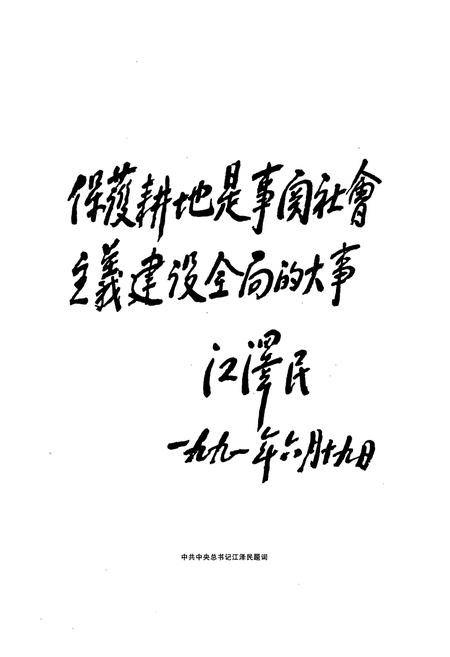 保護耕地是事关社會
主義建设全局的大事
江澤民
一九九一年六月十九日
中共中央总书记江泽民题词